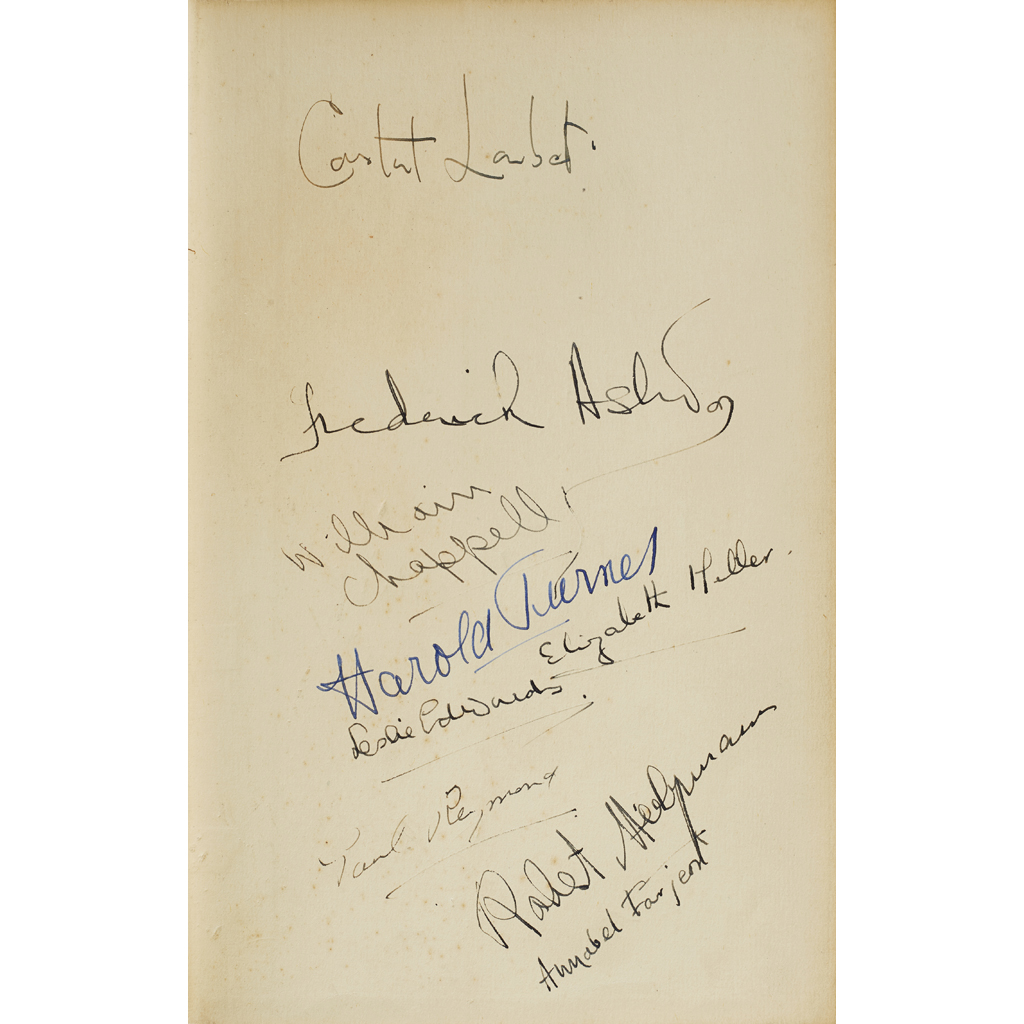 Constant Lambert.
Frederick Ashton
William
Chappell
Harold Turner
Elizabeth Miller.
Leslie Edwards.
Paul Reymond
Robert Helpmann
Annabel Farjeon